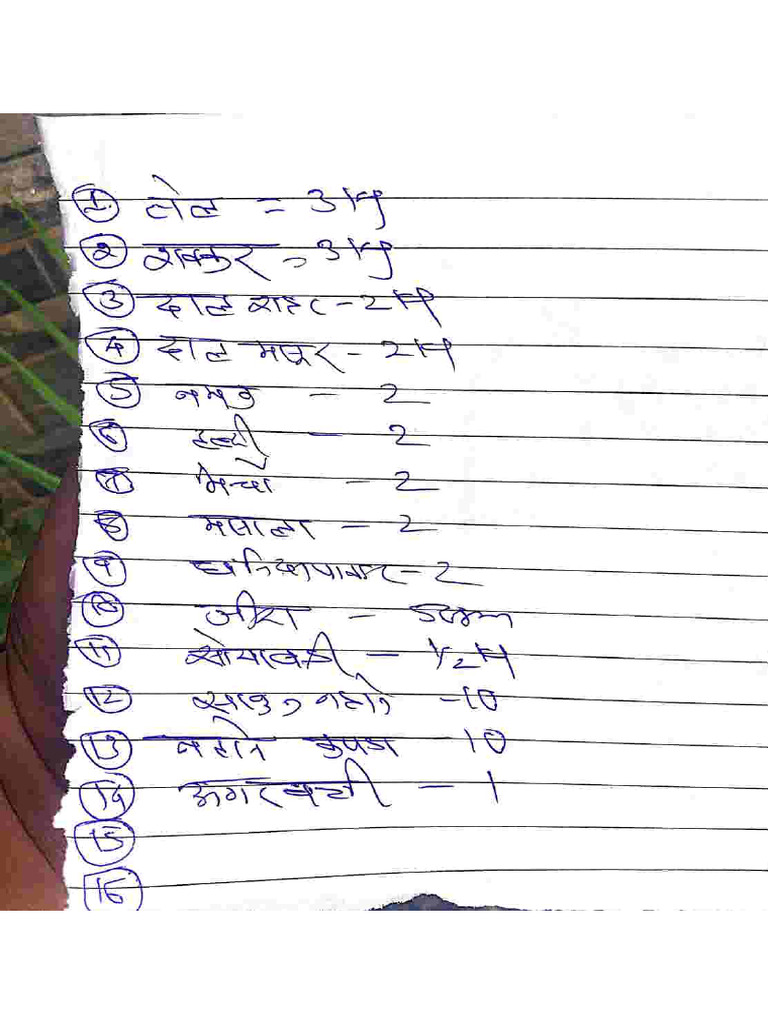 1. तेल = 3 Kg
2 शक्कर = 3 Kg
3 दाल राहर - 2 K
4 दाल मसूर - 2 K
5 नमक - 2
6 हल्दी - 2
7 मिर्ची - 2
8 मसाला - 2
9 धनिया पावडर - 2
10 जीरा -
11 सोयाबड़ी - 1/2 K
12 साबुन नहाने - 10
13 कपडा 10
14 अगरबत्ती - 1
15
16